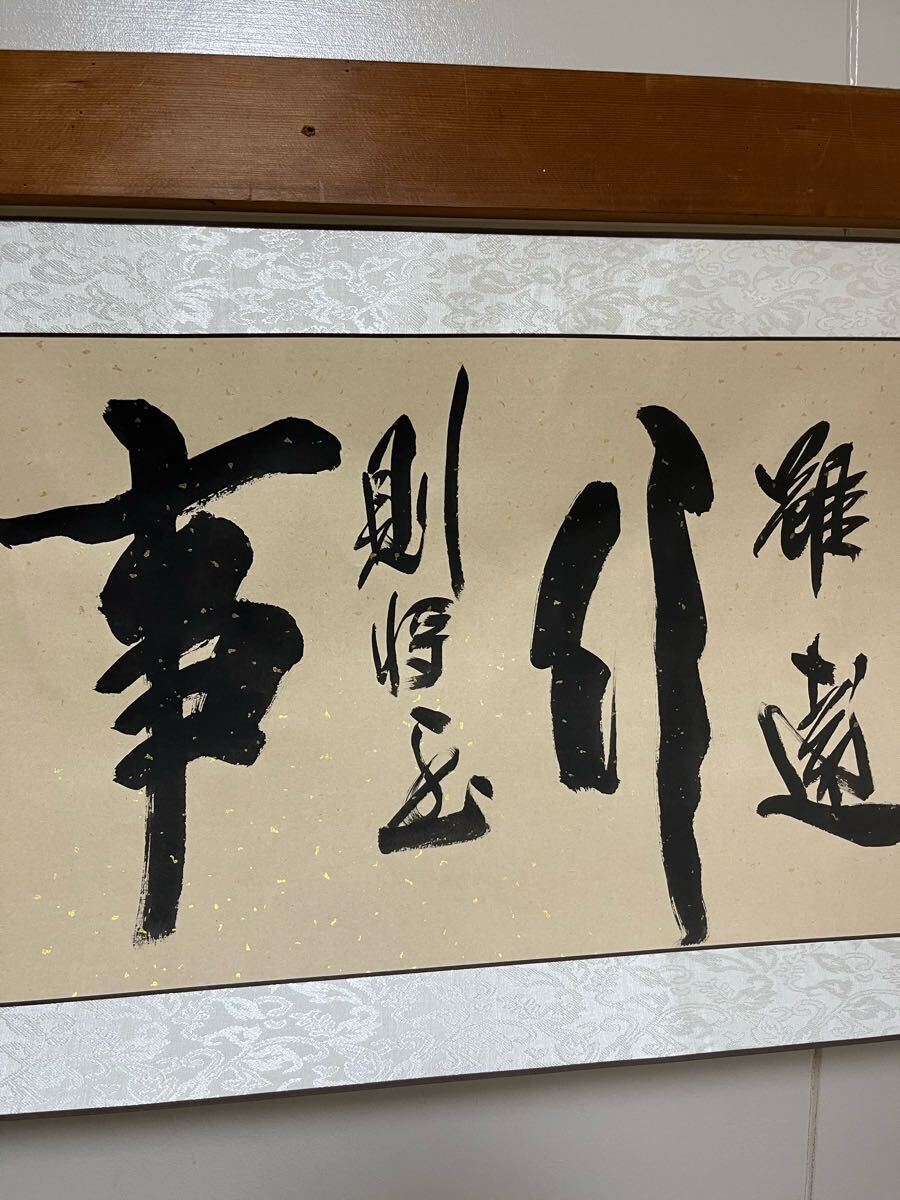 雖遠
行
則将至
事